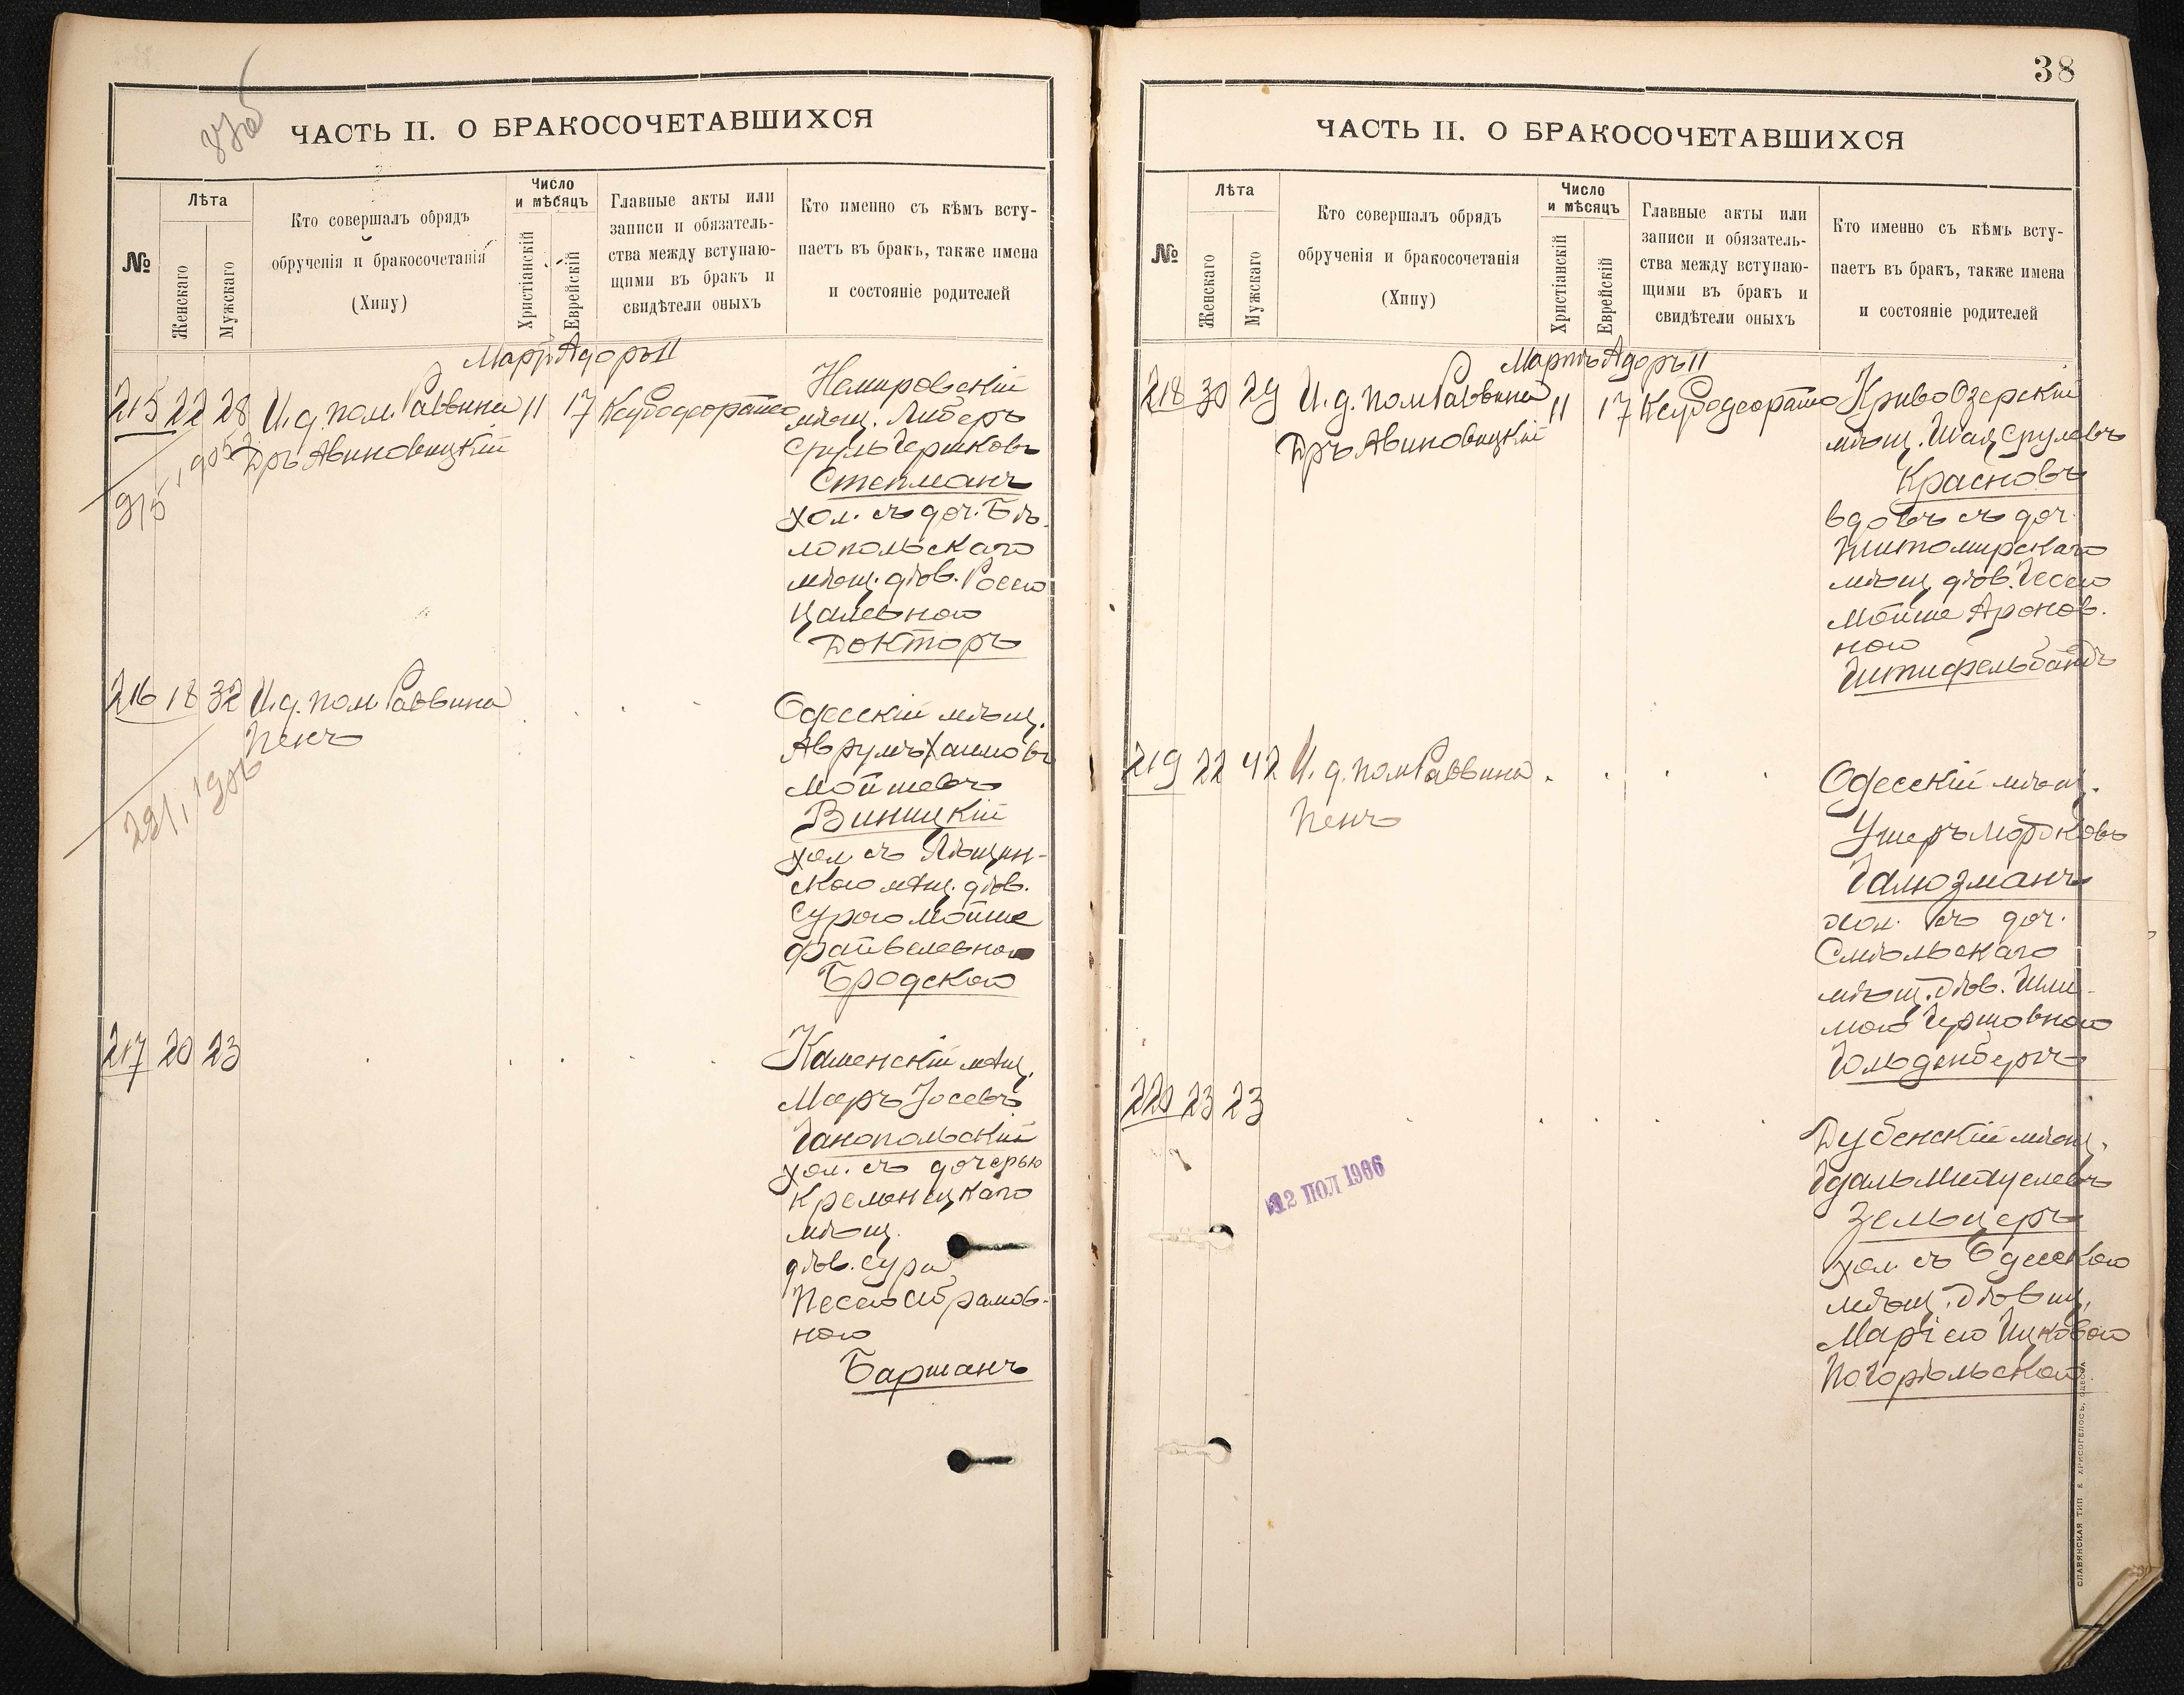 ЧАСТЬ II. О БРАКОСОЧЕТАВШИХСЯ
№
Лѣта
Женскаго
Мужскаго
Кто совершалъ обрядъ
обрученія и бракосочетанія
(Хипу)
Число
и мѣсяцъ
Христіанскій
Еврейскій
Главные акты или
записи и обязатель-
ства между вступаю-
щими въ бракъ и
свидѣтели оныхъ
Кто именно съ кѣмъ всту-
паетъ въ бракъ, также имена
и состояніе родителей
Мартъ Адоръ II
215 22 28 И. д. пом. Раввина 11 17
Дръ Авиновицкій
Немировскій
мѣщ. Либеръ
Сруль Берковъ
Степманъ
хол. съ доч. Бѣ-
лопольскаго
мѣщ. дѣв. Росею
Цалевною
Докторъ
216 18 32 И. д. пом. Раввина
Пенъ
Одесскій мѣщ.
Аврумъ Хаимовъ
Мойшевъ
Виницкій
хол. съ
скою мѣщ. дѣв.
Сурою Мойше
Файвелевною
Бродскою
217 20 23
Каменскій мѣщ.
Меръ Іосевъ
Ганопольскій
хол. съ дочерью
Кременецкаго
мѣщ.
дѣв. Сура
Песею Абрамов-
ною
Барманъ
38
ЧАСТЬ II. О БРАКОСОЧЕТАВШИХСЯ
№
Лѣта
Женскаго
Мужскаго
Кто совершалъ обрядъ
обрученія и бракосочетанія
(Хипу)
Число
и мѣсяцъ
Христіанскій
Еврейскій
Главные акты или
записи и обязатель-
ства между вступаю-
щими въ бракъ и
свидѣтели оныхъ
Кто именно съ кѣмъ всту-
паетъ въ бракъ, также имена
и состояніе родителей
Мартъ Адоръ II
218 30 29 И. д. пом Раввина 11 17
Дръ Авиновицкій
КривоОзерскій
мѣщ. Шая Срулевъ
Красновъ
вдовъ съ доч.
Житомирскаго
мѣщ. дѣв. Песею
Мойше Аронов.
ною
219 22 42 И. д. пом Раввина
Пенъ
Одесскій мѣщ.
Ушеръ Мордковъ
Галюзманъ
хол. съ доч.
Смѣльскаго
мѣщ. дѣв. Шли-
мою Гершовною
Гольденбергъ
220 23 23
12 ПОЛ 1906
Дубенскій мѣщ.
Зельцеръ
хол. съ Одесскою
мѣщ. дѣвиц.
Маріею Ицковою
Погорѣльскою
СЛАВЯНСКАЯ ТИП. Е. ХРИСОГЕЛОСЪ, ОДЕССА